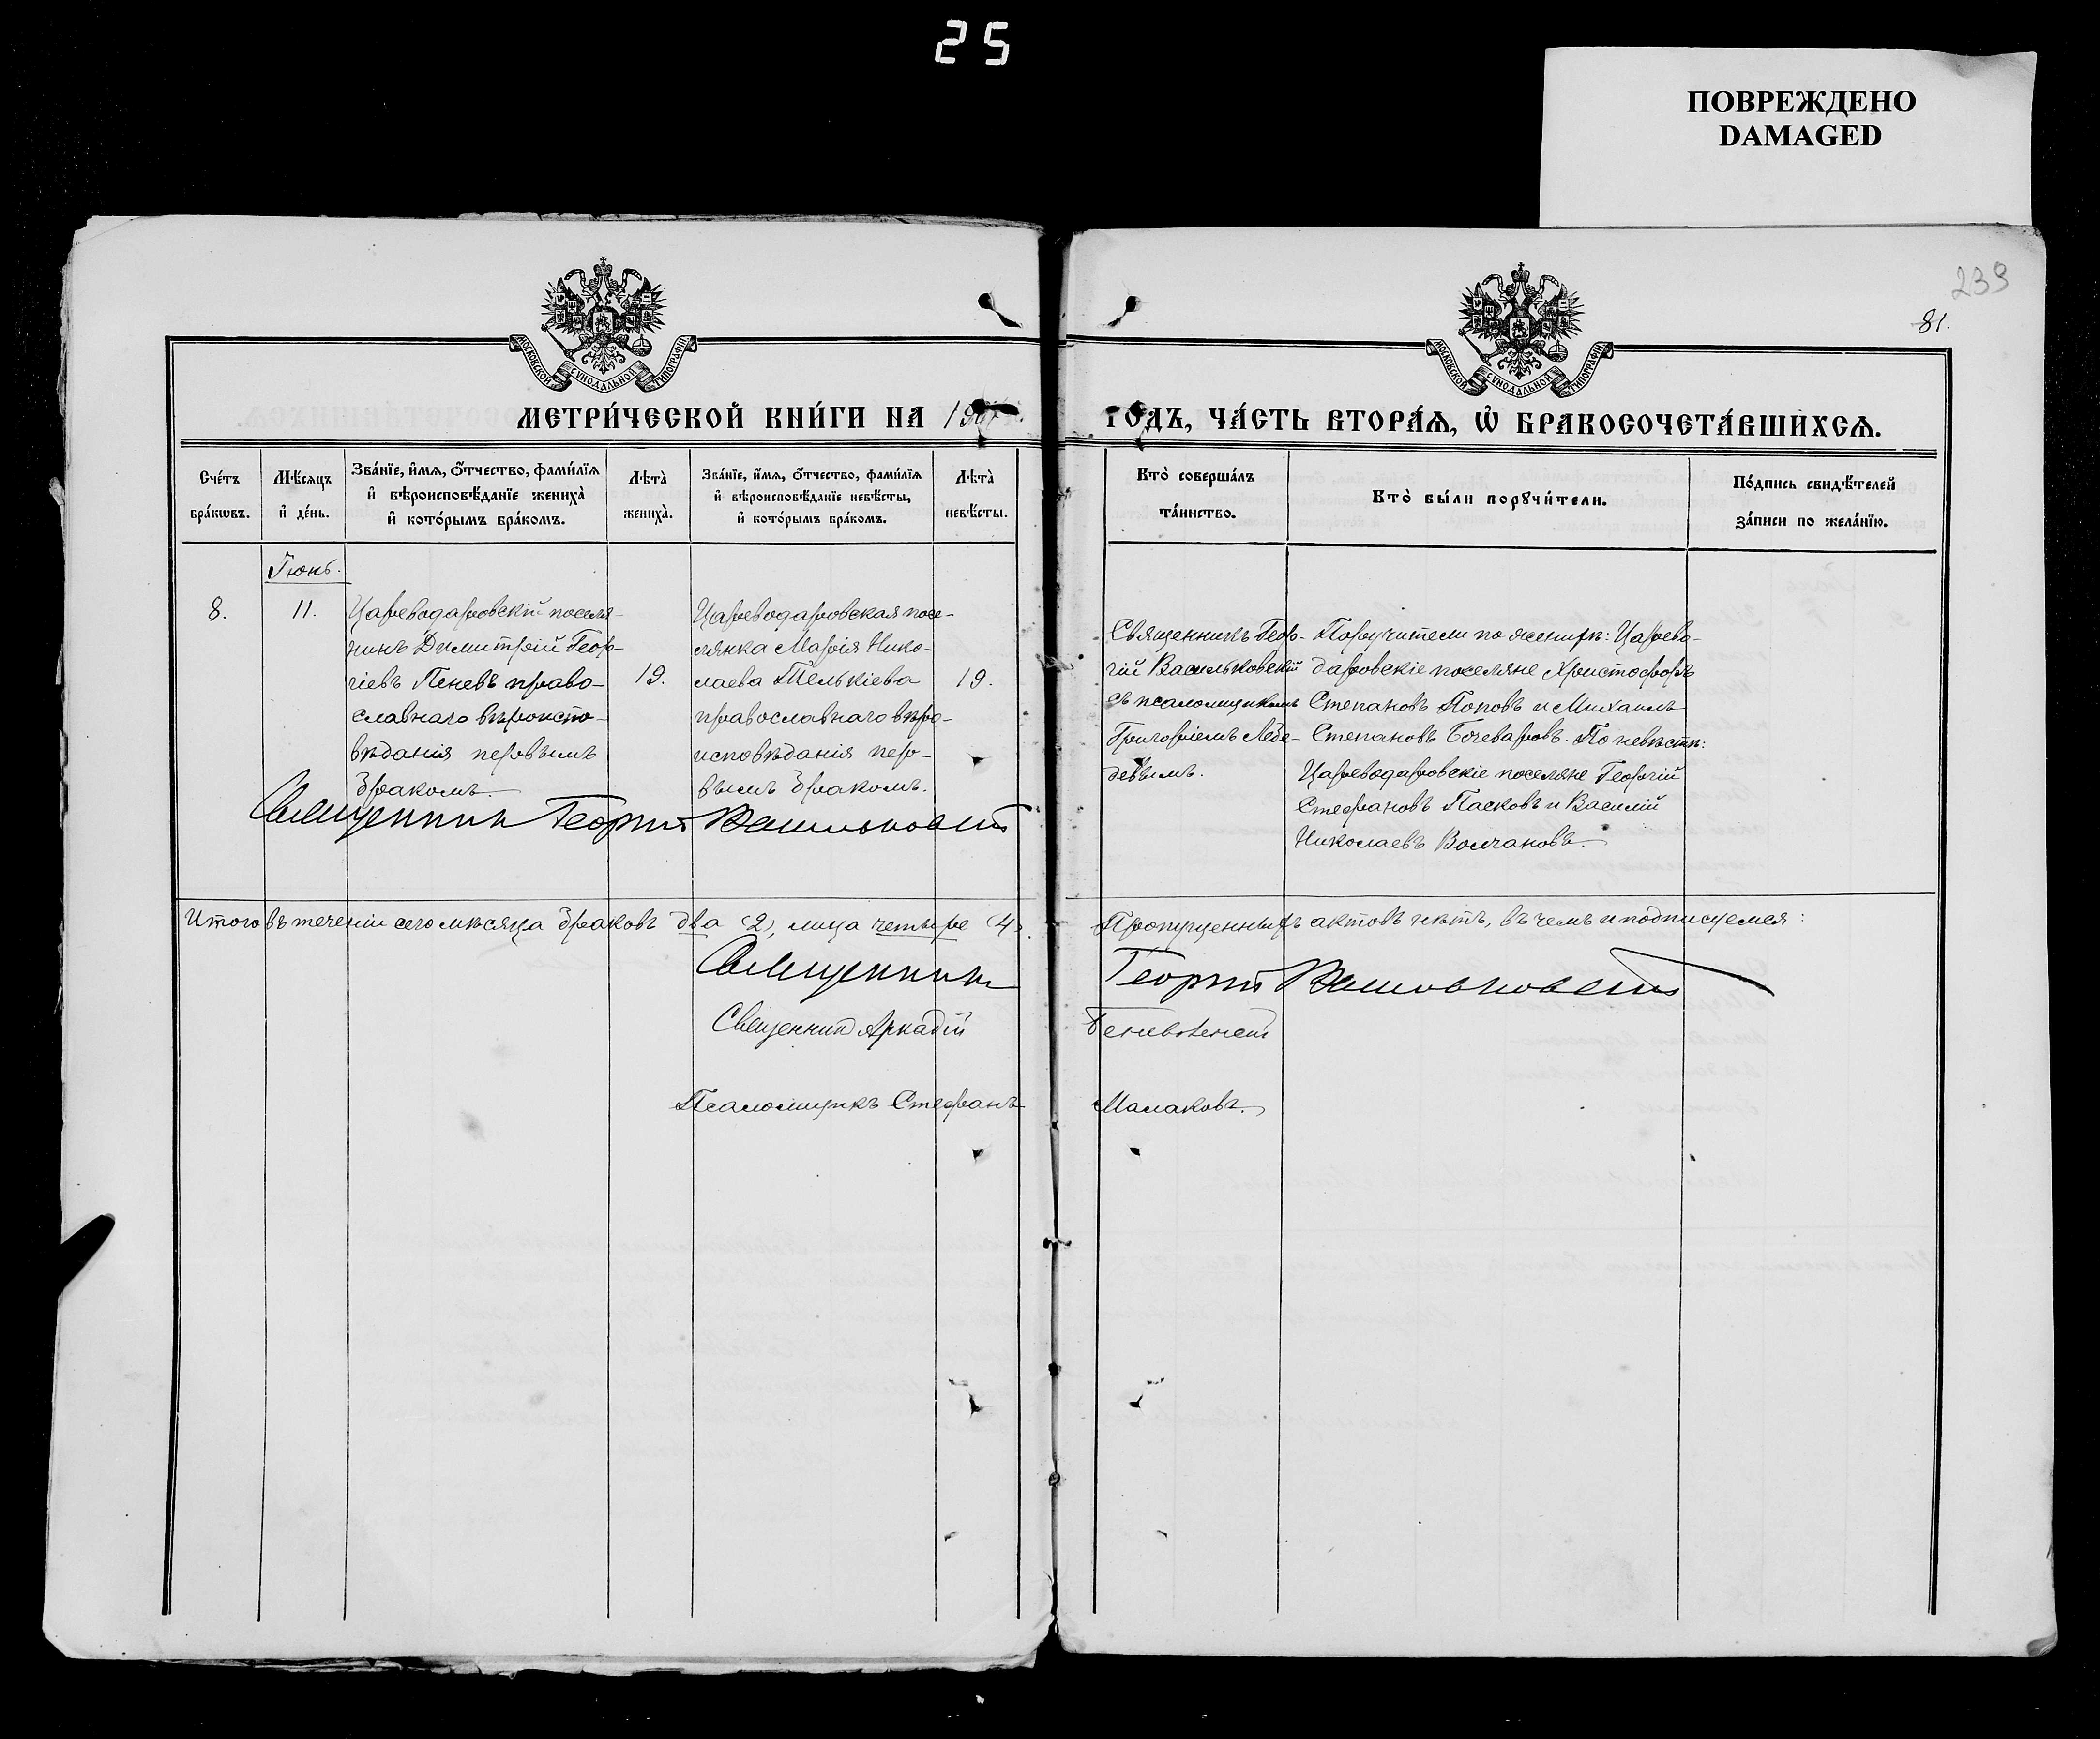 25
ПОВРЕЖДЕНО
DAMAGED
239
81.
МОСКОВСКОЙ СѴНОДАЛЬНОЙ ТИПОГРАФІИ
МОСКОВСКОЙ СѴНОДАЛЬНОЙ ТИПОГРАФІИ
МЕТРИ́ЧЕСКОЙ КНИ́ГИ НА
ГО́ДЪ, ЧА́СТЬ ВТОРА́Ѧ, Ѡ҆ БРАКОСОЧЕТА́ВШИХСѦ.
Сче́тъ бра́кѡвъ.
Мѣ́сяцъ и҆ де́нь.
Зва́нїе, и҆́мя, ѻ҆́тчество, фами́лїя
и҆ вѣроисповѣ́данїе жениха̀
и҆ кото́рымъ бра́комъ.
Лѣта̀ жениха̀.
Зва́нїе, и҆́мя, ѻ҆́тчество, фами́лїя
и҆ вѣроисповѣ́данїе невѣ́сты,
и҆ кото́рымъ бра́комъ.
Лѣта̀ невѣ́сты.
Кто̀ соверша́лъ та́инство.
Кто̀ бы́ли порꙋчи́тели.
По́дпись свидѣ́телей за́писи по жела́нїю.
Іюнь.
8.
11.
Цареводаровскій поселя-
нинъ Димитрій Геор-
гіевъ Пеневъ право-
славнаго вѣроиспо-
вѣданія первымъ
бракомъ.
19.
Цареводаровская посе-
лянка Марія Нико-
лаева Телькіева
православнаго вѣро-
исповѣданія пер-
вымъ бракомъ.
19.
Священникъ Геор-
гій Васильковскій
съ псаломщикомъ
Григоріемъ Лебе-
девымъ.
Поручители по женихѣ: Царево-
даровскіе поселяне Христофоръ
Степановъ Поповъ и Михаилъ
Степановъ Бочеваровъ. По невѣстѣ:
Цареводаровскіе поселяне Георгій
Стефановъ Пасковъ и Василій
Николаевъ Волчановъ.
Священник Георгий Васильковский
Итого въ теченіи сего мѣсяца браковъ два (2), лица четыре (4).
Пропущенныхъ актовъ нѣтъ, въ чемъ и подписуемся:
Священник Георгий Васильковский
Священник Аркадій
Псаломщикъ Стефанъ Малаковъ.